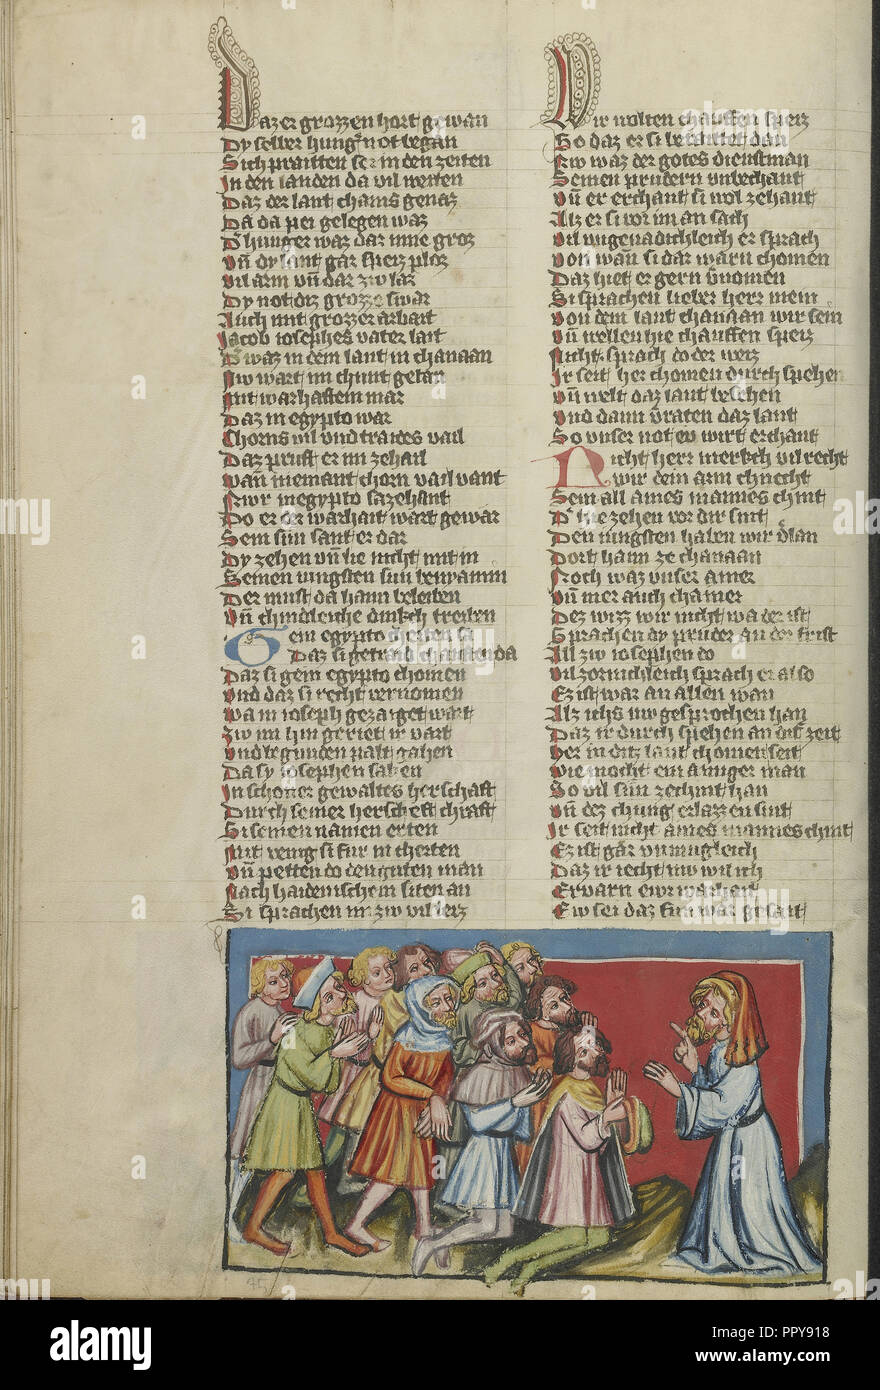 Daz er grozzen hort gewan
Dy selber hung not began
Sich praitten ser in den zeiten
In den landen da vil weiten
Daz der lant chains genaz
Da da pei gelegen waz
D hunger waz dar inne groz
Vn dy lant gar speiz ploz
Vil arm vn dar zw laz
Dy not diz grozze swar
Auch mit grozzer arbait
Jacob iosephes vater lait
D waz in dem lant in chanaan
Nw wart im chunt getan
Mit warhaftem mar
Daz in egypto war
Chorns vil vnd traides vail
Daz pruft er im ze hail
wan niemant chorn vail vant
Nwr in egypto sa ze hant
Do er der warhait wart gewar
Sein sun sant er dar
Dy zehen vn lie nicht mit in
Seinen iungsten sun benyamin
Der must da haim beleiben
Vn chindleiche dinkch treiben
Gein egypto cherten sa
Daz si getraid chauften da
Daz si gein egypt chomen
Vnd daz si recht vernomen
wa in ioseph gezaiget wart
Zw im hin geriet ir vart
Vnd begunden palt gahen
Da sy iosephen sahen
In schoner gewaltes herschaft
Durch seiner herscheft chraft
Si seinen namen erten
Mit venig si fur in cherten
Vn petten do den guten man
Nach haidenischem siten an
Si sprachen im zw vil
Wir wolten chauffen speiz
So daz er si
Nw waz der gotes dienstman
Seinen prudern vnbechant
Vn er erchant si wol zehant
Alz er si vor im an sach
Vil vngenadichleich er sprach
Von wan si dar warn chomen
Daz hiet er gern vnomen
Si sprachen lieber herr mein
Von dem lant chanaan wir sein
Vn wellen hie chauffen speiz
Nicht sprach do der weiz
Ir seit her chomen durch spehen
Vn welt daz lant besehen
Vnd dann vraten daz lant
So vnser not ew wirt erchant
Nicht herr merkch vil recht
wir dein arm chnecht
Sein all aines mannes chint
D hie zehen vor dir sint
Den iungsten haben wir dlan
Dort haim ze chanaan
Noch waz vnser ainer
Vn mer auch chainer
Dez wizz wir nicht wa der ist
Sprachen dy pruder an der frist
All zw iosephen do
Vil zornichleich sprach er also
Ez ist war an allen wan
Alz ichs nw gesprochen han
Daz ir durch spehen an diz zeit
Her in ditz lant chomen seit
wie mocht ein ainiger man
So vil sun ze chint han
Vn dez chung erlazzen sint
Ir seit nicht aines mannes chint
Ez ist gar vnmugleich
Daz ir iecht nw wil ich
Ervarn ewr warhait
Ew sei daz fur war gesait
45
alamy
Image ID: PPY918
www.alamy.com